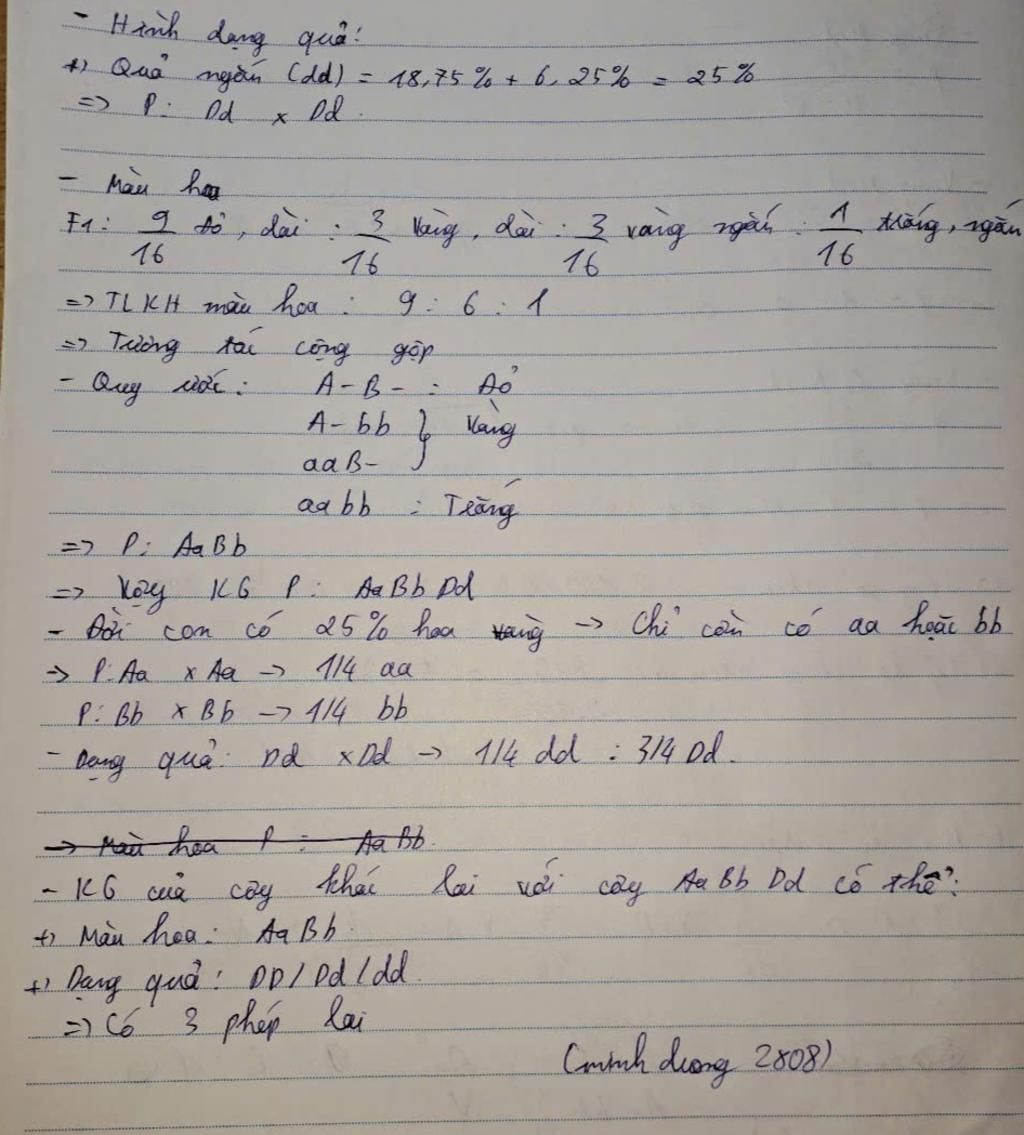 - Hình dạng quả:
+) Quả ngắn (dd) = 18,75% + 6,25% = 25%
=> P: Dd x Dd.
- Màu hoa
F1: 9/16 đỏ, dài : 3/16 vàng, dài : 3/16 vàng ngắn : 1/16 trắng, ngắn
=> TLKH màu hoa : 9 : 6 : 1
=> Tương tác cộng gộp
- Quy ước: A-B- : Đỏ
A-bb } Vàng
aaB-
aabb : Trắng
=> P: AaBb
=> Vậy KG P: AaBbDd
- Đời con có 25% hoa vàng -> Chỉ cần có aa hoặc bb
-> P: Aa x Aa -> 1/4 aa
P: Bb x Bb -> 1/4 bb
- Dạng quả: Dd x Dd -> 1/4 dd : 3/4 Dd.
-> Màu hoa P : AaBb.
- KG của cây khác lai với cây AaBbDd có thể:
+) Màu hoa: AaBb.
+) Dạng quả: DD/Dd/dd.
=> Có 3 phép lai
(minh duong 2808)